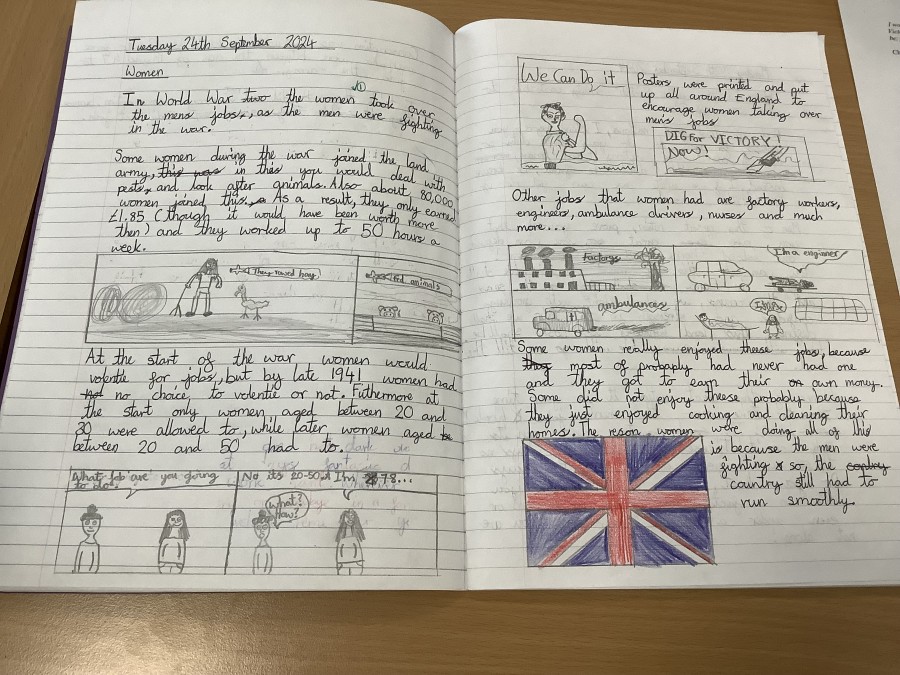 Tuesday 24th September 2024
Women
In World War two the women took over
the mens jobs, as the men were fighting
in the war.
Some women during the war joined the land
army, this was in this you would deal with
pests, and look after animals. Also about 80,000
women joined this. As a result, they only earned
£1.85 (though it would have been worth more
then) and they worked up to 50 hours a
week.
They rowed hay
Fed animals
At the start of the war women would
volentie for jobs, but by late 1941 women had
no choice to volentie or not. Futhermore at
the start only women aged between 20 and
30 were allowed to, while later women aged
between 20 and 50 had to.
What job are you going
to do?
No its 20-50 I'm 78...
What?
How?
We Can Do it
Posters were printed and put
up all around England to
encourage women taking over
men's jobs
DIG for VICTORY!
NOW!
Other jobs that women had are factory workers,
engineers, ambulance drivers, nurses and much
more...
factorys
I'm a enginner
ambulances
Some women really enjoyed theese jobs, because
most of propaply had never had one
and they got to earn their own money.
Some did not enjoy theese probaply because
they just enjoyed cooking and cleaning their
homes. The reson women were doing all of this
is because the men were
fighting so, the
country still had to
run smoothly.